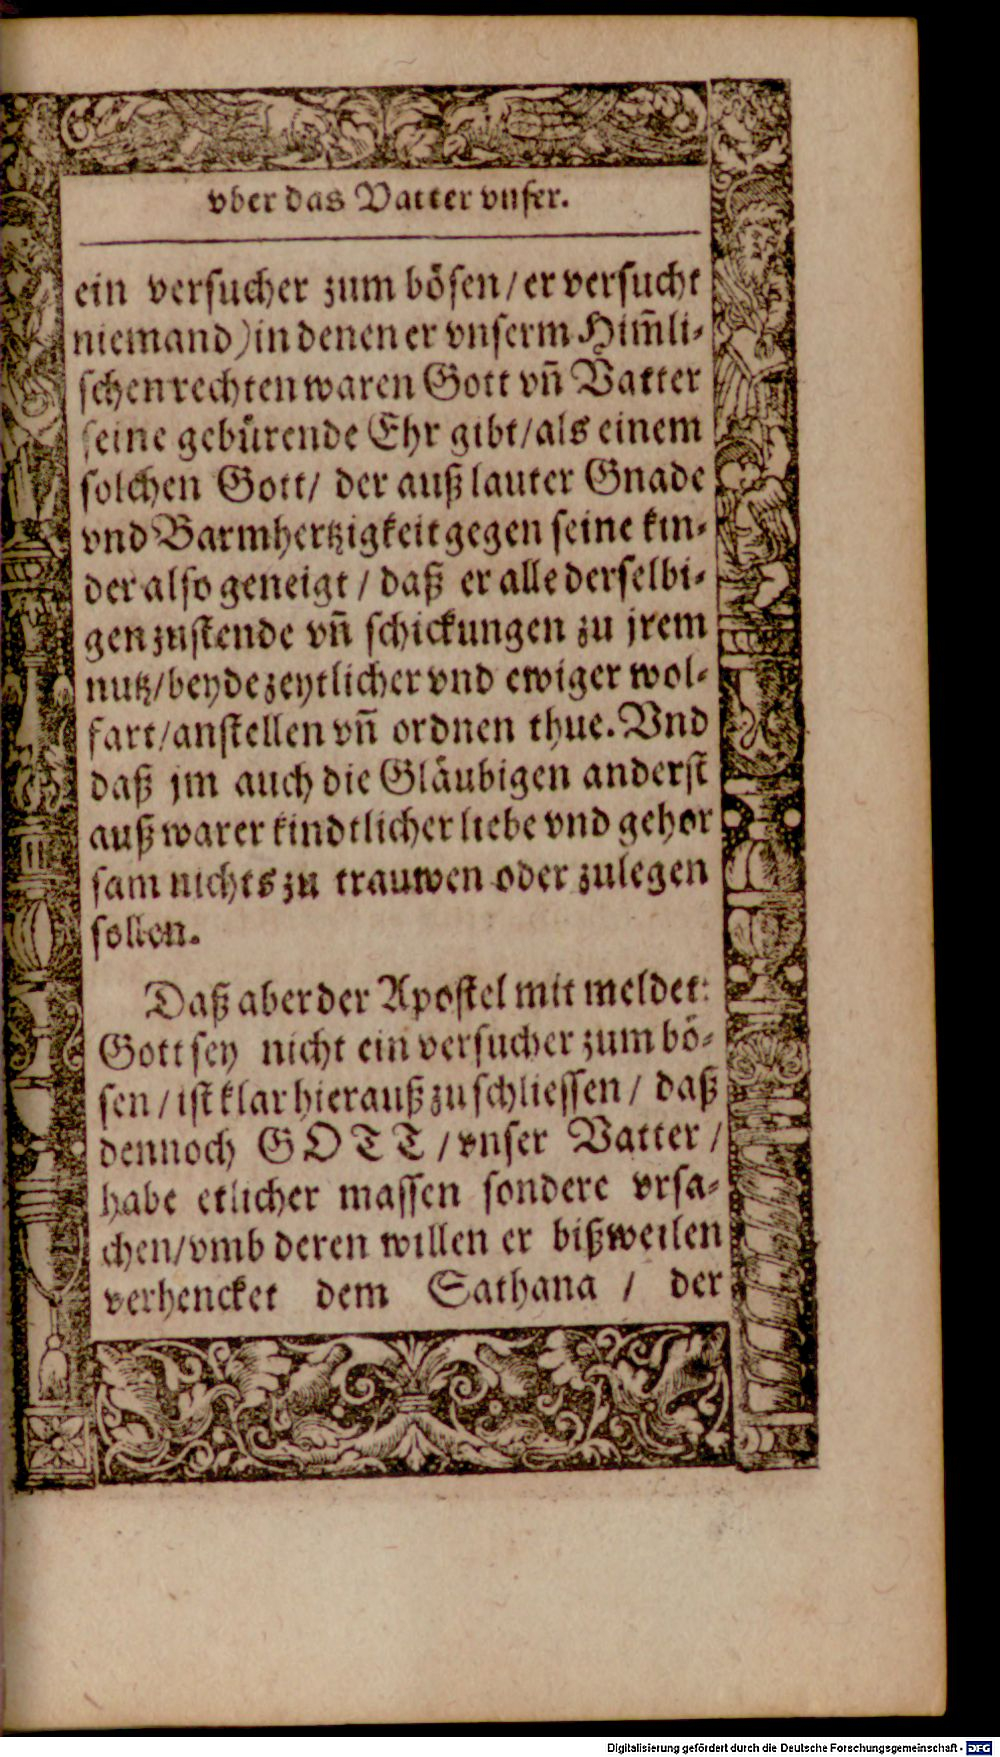 vber das Vatter vnser.
ein versucher zum bösen / er versucht
niemand) in denen er vnserm Him̃li-
schen rechten waren Gott vn̄ Vatter
seine gebürende Ehr gibt / als einem
solchen Gott / der auß lauter Gnade
vnd Barmhertzigkeit gegen seine kin-
der also geneigt / daß er alle derselbi-
gen zustende vn̄ schickungen zu jrem
nutz / beyde zeytlicher vnd ewiger wol-
fart / anstellen vn̄ ordnen thue. Vnd
daß jm auch die Gläubigen anderst
auß warer kindtlicher liebe vnd gehor
sam nichts zu trauwen oder zulegen
sollen.
Daß aber der Apostel mit meldet:
Gott sey nicht ein versucher zum bö-
sen / ist klar hierauß zu schliessen / daß
dennoch GOTT / vnser Vatter /
habe etlicher massen sondere vrsa-
chen / vmb deren willen er bißweilen
verhencket dem Sathana / der
Digitalisierung gefördert durch die Deutsche Forschungsgemeinschaft - DFG